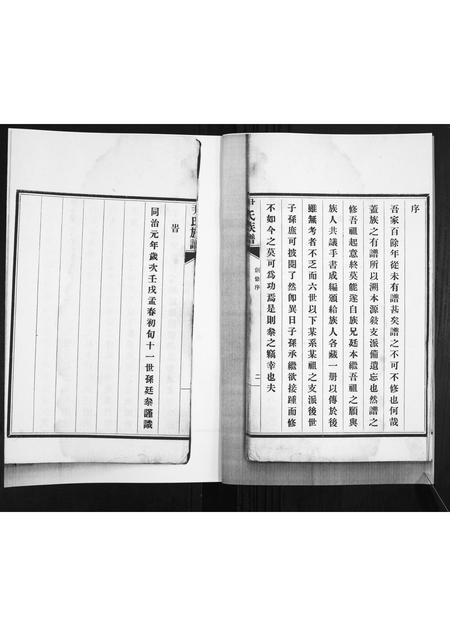 序
吾家百餘年從未有譜甚矣譜之不可不修也何哉
蓋族之有譜所以溯本源敍支派備遺忘也然譜之
修吾祖起意終莫能遂自族兄廷本繼吾祖之願與
族人共議手書成編頒給族人各藏一册以傳於後
雖無考者不乏而六世以下某系某祖之支派後世
子孫庶可披閱了然卽異日子孫承繼欲接踵而修
不如今之莫可爲功焉是則叅之竊幸也夫
尹氏族譜
創修序
二
尹氏族譜
旹
同治元年歲次壬戌孟春初旬十一世孫廷叅謹識